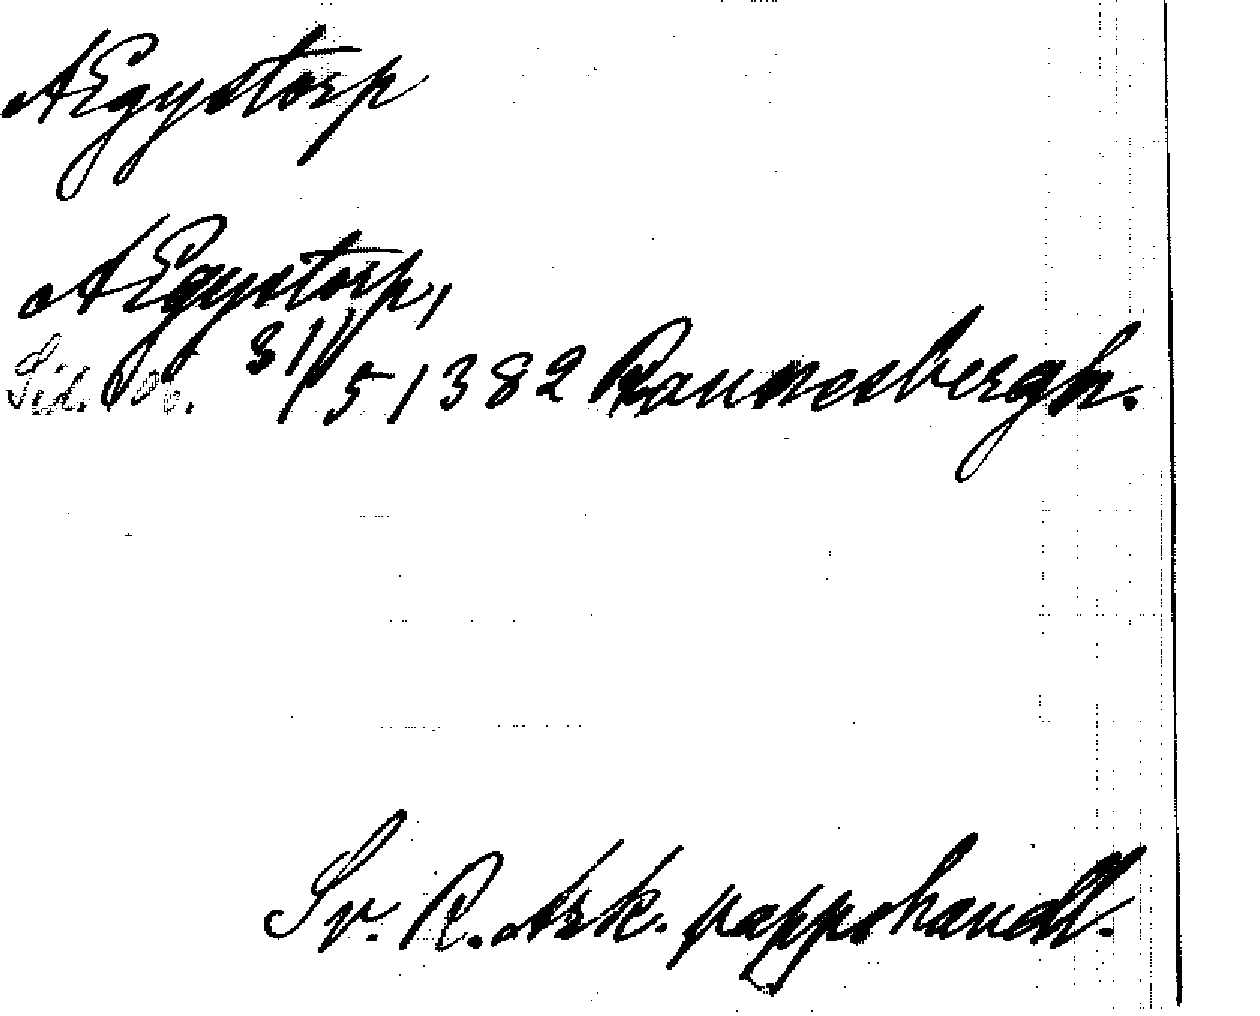 AEgystorp
AEgystorp,
Sid. 31/5 1382 Raumesbergh.
Sv. R. Ark. pappshandl.